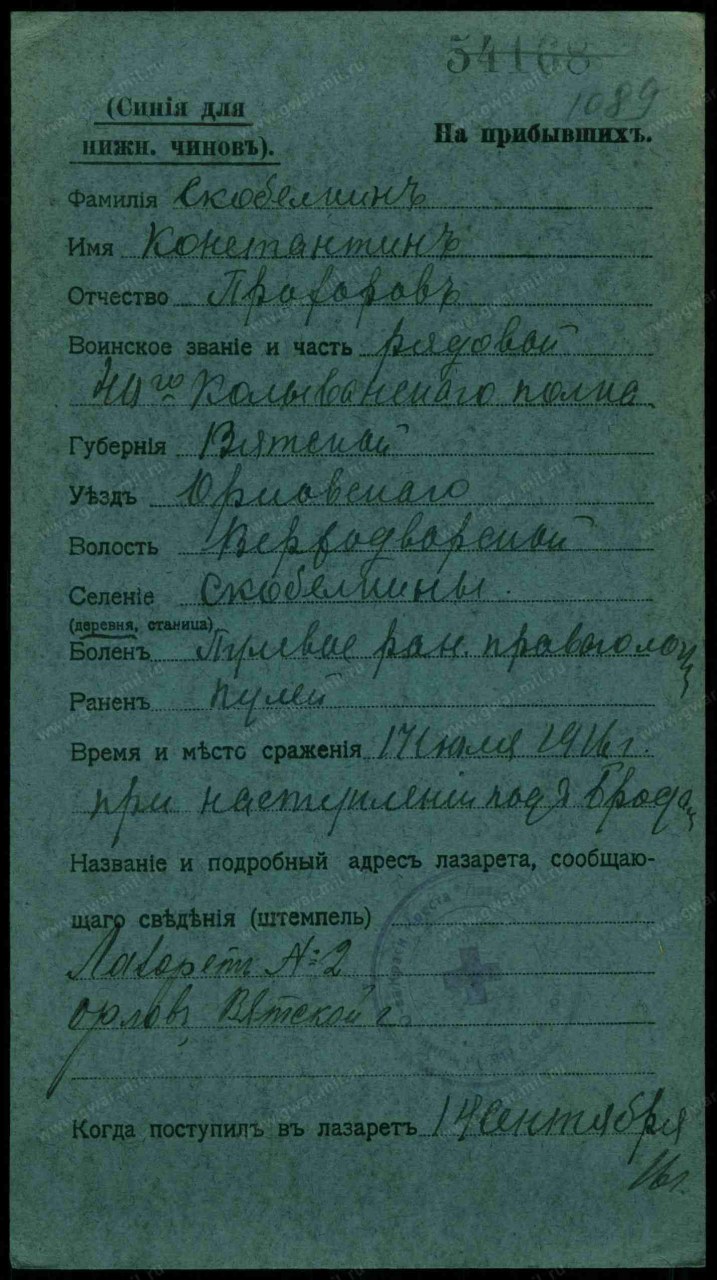 54168
1089
(Синія для
нижн. чиновъ).
На прибывшихъ.
Фамилія Скобелкинъ
Имя Константинъ
Отчество Прохоровъ
Воинское званіе и часть рядовой
40го Колыванскаго полка
Губернія Вятской
Уѣздъ Орловскаго
Волость Верходворской
Селеніе Скобелкины.
(деревня, станица)
Боленъ Пулевое ран. праваго
Раненъ пулей
Время и мѣсто сраженія 17 июля 1916 г.
при наступленіи подъ Бродам
Названіе и подробный адресъ лазарета, сообщаю-
щаго свѣдѣнія (штемпель)
Лазаретъ №2
орловъ, Вятской г.
Когда поступилъ въ лазаретъ 14 сентября
16 г.
www.gwar.mil.ru